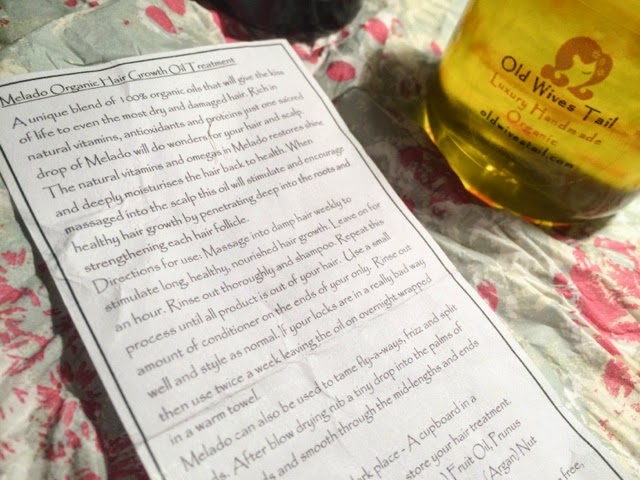 Melado Organic Hair Growth Oil Treatment
A unique blend of 100% organic oils that will give the kiss
of life to even the most dry and damaged hair. Rich in
natural vitamins, antioxidants and proteins just one sacred
drop of Melado will do wonders for your hair and scalp.
The natural vitamins and omegas in Melado restores shine
and deeply moisturises the hair back to health. When
massaged into the scalp this oil will stimulate and encourage
healthy hair growth by penetrating deep into the roots and
strengthening each hair follicle.
Directions for use: Massage into damp hair weekly to
stimulate long, healthy, nourished hair growth. Leave on for
an hour. Rinse out thoroughly and shampoo. Repeat this
process until all product is out of your hair. Use a small
amount of conditioner on the ends of your only. Rinse out
well and style as normal. If your locks are in a really bad way
then use twice a week leaving the oil on overnight wrapped
in a warm towel.
Melado can also be used to tame fly-a-ways, frizz and split
ds. After blow drying rub a tiny drop into the palms of
ds and smooth through the mid-lengths and ends
ark place - A cupboard in a
store your hair treatment.
) Fruit Oil, Prunus
(Argan) Nut
free,
Old Wives Tail
Luxury Handmade
Organic
oldwivestail.com